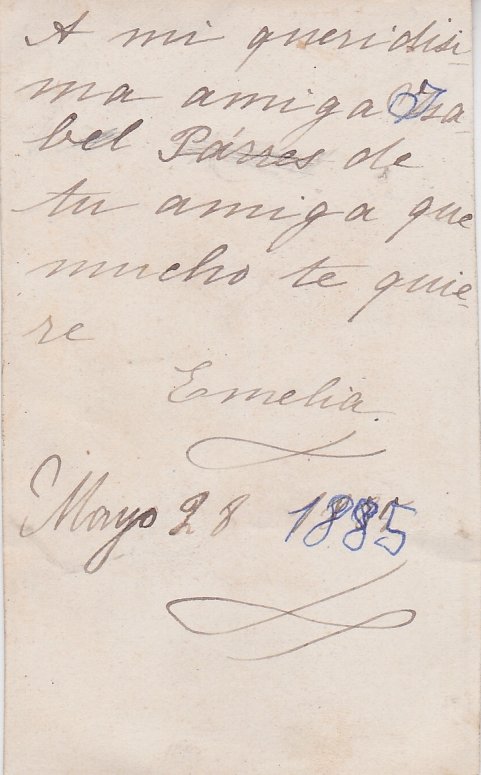 A mi queridisi-
ma amiga Isa-
bel Párres de
tu amiga que
mucho te quie-
re
Emelia.
Mayo 28 1885